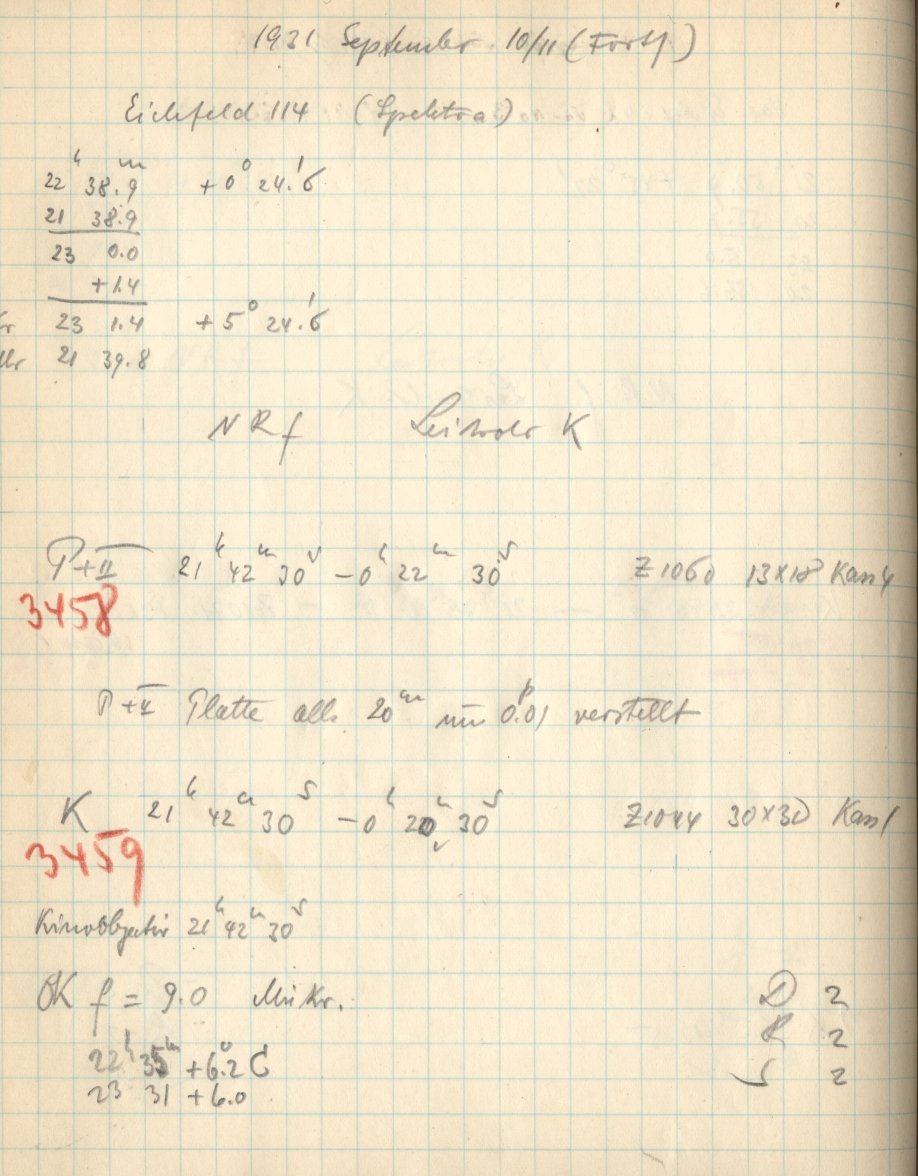 1931 September 10/11 (Forts.)
Eichfeld 114 (Spektra)
22h 38.9m +0° 24.'6
21 38.9
23 0.0
+1.4
Kr 23 1.4 +5° 24.'6
Uhr 21 39.8
NRf Leitrohr K
P+II 21h 42m 30s −0h 22m 30s Z1060 13x18 Kass 4
3458
P+II Platte alle 20m um 0.p01 verstellt
K 21h 42m 30s −0h 20m 30s Z1044 30x30 Kass 1
3459
Kinoobjektiv 21h 42m 30s
OK f = 9.0 Mikr.
D 2
R 2
22h 35m +6.°2
S 2
23 31 +6.0